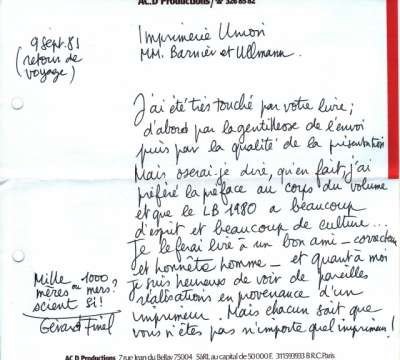 AC.D Productions / ☎ 326 85 82
9 Sept. 81
(retour de
voyage)
Imprimerie Union
MM. Barnier et Ullmann.
J'ai été très touché par votre livre ;
d'abord par la gentillesse de l'envoi
puis par la qualité de la présentation
Mais oserai-je dire, qu'en fait, j'ai
préféré la préface au corps du volume
et que le LB 1980 a beaucoup
d'esprit et beaucoup de culture...
Je le ferai lire à un bon ami – correcteur
et honnête homme – et quant à moi
je suis heureux de voir de pareilles
réalisations en provenance d'un
imprimeur. Mais chacun sait que
vous n'êtes pas n'importe quel imprimeur !
Mille ou 1000
mères mers ?
scient Si !
Gérard
AC.D Productions 7 rue Jean du Bellay 75004 SARL au capital de 50000 F. 311593933 B R.C. Paris